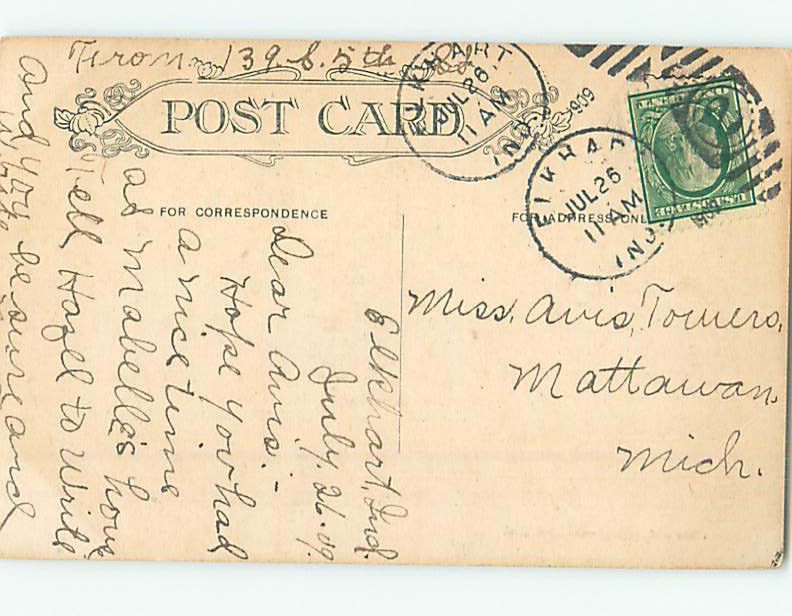 139 S. 5th St.
POST CARD
FOR CORRESPONDENCE
FOR ADDRESS ONLY
ELKHART
JUL 26
11 AM
IND.
1909
ELKHART
JUL 26
11 AM
IND.
1909
Elkhart, Ind.
July. 26. 09.
Dear Avis:-
Hope you had
a nice time
at Mabelle's
Tell Hazel to write
and you be sure and
write
Miss, Avis, Towers,
Mattawan,
Mich.